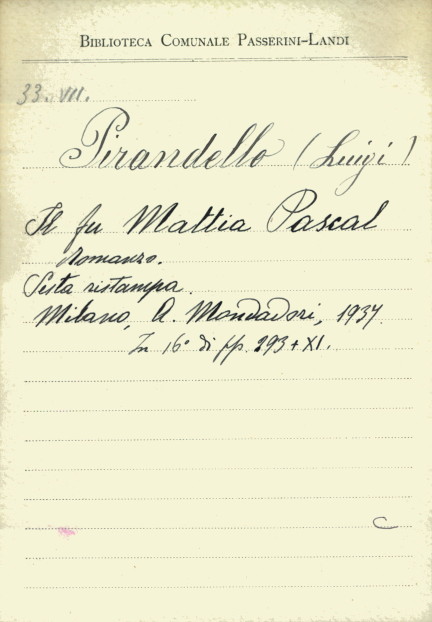 BIBLIOTECA COMUNALE PASSERINI-LANDI
33. VII.
Pirandello (Luigi)
Il fu Mattia Pascal
Romanzo.
Sesta ristampa.
Milano, A. Mondadori, 1937.
In 16° di pp. 293 + XI.
C